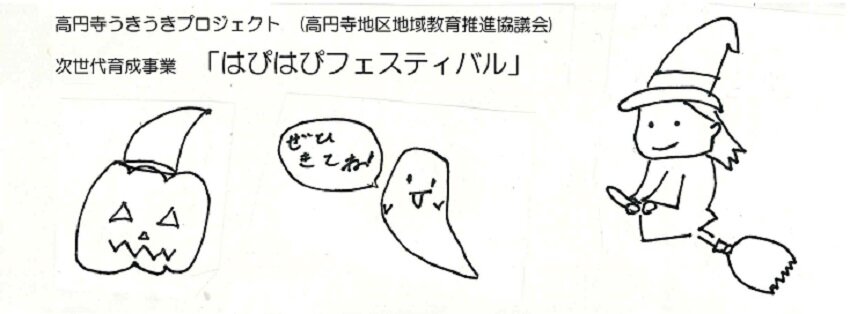 高円寺うきうきプロジェクト （高円寺地区地域教育推進協議会）
次世代育成事業 「はぴはぴフェスティバル」
ぜひ
きてね!